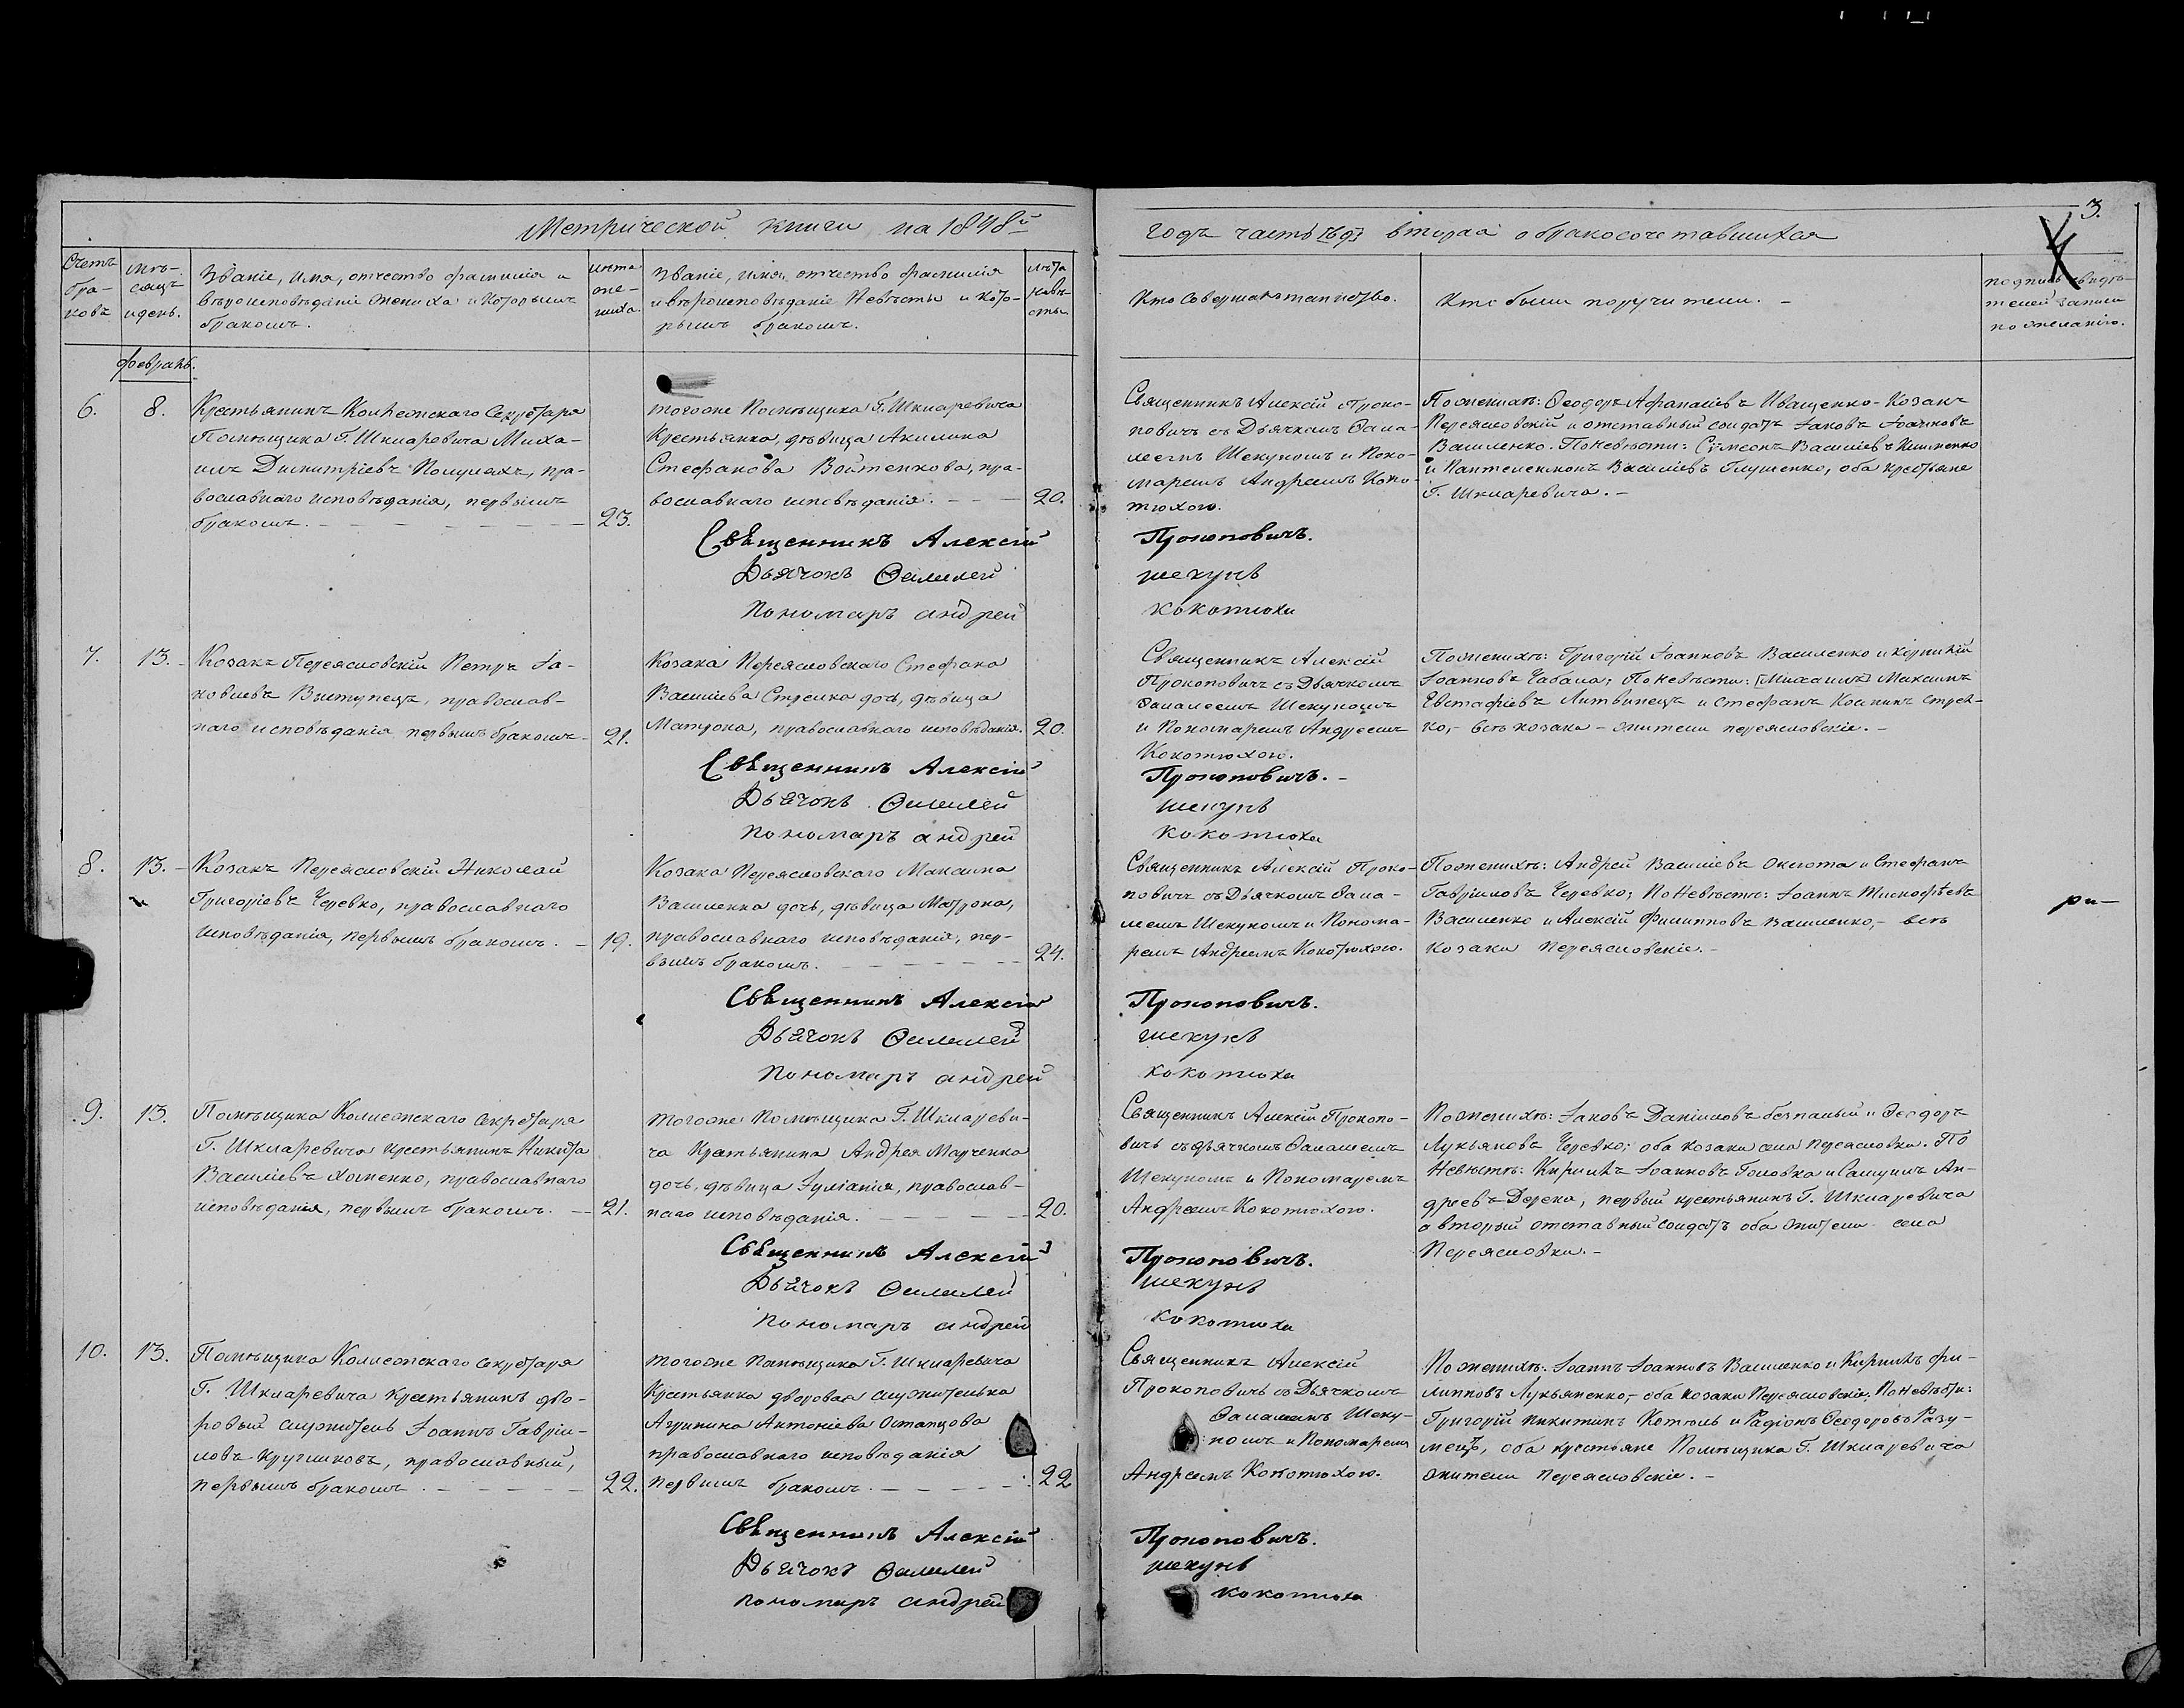 3.
Метрической книги на 1848й годъ часть [вд] вторая о бракосочетавшихся
Счетъ бра-
ковъ
мѣ-
сяцъ
и день.
Званіе, имя, отчество фамилія и
вѣроисповѣданіе жениха и которымъ
бракомъ.
лѣта
же-
ниха.
Званіе, имя, отчество фамилія
и вѣроисповѣданіе Невѣсты и кото-
рымъ бракомъ.
лѣта
невѣ-
сты.
Кто совершалъ таинство.
Кто были поручители. -
подпись свидѣ-
телей записи
по желанію.
февраль.
6.
8.
Крестьянинъ Коллежскаго Секретаря
Помѣщика Г. Шкляревича Миха-
илъ Димитріевъ Полуляхъ, пра-
вославнаго исповѣданія, первымъ
бракомъ.
23.
тогоже Помѣщика Г. Шкляревича
Крестьянка, дѣвица Акилина
Стефанова Войтенкова, пра-
вославнаго исповѣданія.
20.
Священникъ Алексій
Дьячокъ Фалалей
Пономаръ андрей
Священникъ Алексій Проко-
повичъ съ Дьячкомъ Фала-
леемъ Шекуномъ и Поно-
маремъ Андреемъ Коко-
тюхою.
Прокоповичъ.
шекунъ
кокотюха
По женихѣ: Ѳеодоръ Афанасіевъ Иващенко - Козакъ
Переясловскій и отставный солдатъ Іаковъ Іоанновъ
Василенко. По невѣсти: Сѵмеонъ Василіевъ
и Пантелеимонъ Василіевъ Глущенко, оба крестьяне
Г. Шкляревича. -
7.
13.
Козакъ Переясловскій Петръ Іа-
ковлевъ православ-
наго исповѣданія первымъ бракомъ
21.
Козака Переясловскаго Стефана
Василіева Стрелка дочь, дѣвица
Матрона, православнаго исповѣданія.
20.
Священникъ Алексій
Дьячокъ Фалалей
пономаръ андрей
Священникъ Алексій
Прокоповичъ съ Дьячкомъ
Фалалеемъ Шекуномъ
и Пономаремъ Андреемъ
Кокотюхою.
Прокоповичъ. -
шекунъ
кокотюха
По женихѣ: Григорій Іоанновъ Василенко и Корнилій
Іоанновъ Чабана; По невѣсти: [Михаилъ] Максимъ
Евстафіевъ Литвинецъ и Стефанъ Стрел-
ко, - всѣ козаки - жители переясловскіе. -
8.
13.
Козакъ Переясловскій Николай
Григоріевъ Черевко, православнаго
исповѣданія, первымъ бракомъ.
19.
Козака Переясловскаго Максима
Василенка дочь, дѣвица Матрона,
православнаго исповѣданія, пер-
вымъ бракомъ.
24.
Священникъ Алексій
Дьячокъ Фалалей
Пономаръ андрей
Священникъ Алексій Проко-
повичъ съ Дьячкомъ Фала-
леемъ Шекуномъ и Понома-
ремъ Андреемъ Кокотюхою.
Прокоповичъ.
шекунъ
кокотюха
По женихѣ: Андрей Василіевъ и Стефанъ
Гавріиловъ Черевко; По Невѣстѣ: Іоаннъ Тимофѣевъ
Василенко и Алексій Филипповъ Василенко, - всѣ
козаки Переясловскіе. -
9.
13.
Помѣщика Коллежскаго Секретаря
Г. Шкляревича крестьянинъ Никита
Василіевъ Хоменко, православнаго
исповѣданія, первымъ бракомъ.
21.
тогоже Помѣщика Г. Шкляреви-
ча Крестьянина Андрея Марченка
дочь, дѣвица Іуліанія, православ-
наго исповѣданія.
20.
Священникъ Алексій
Дьячокъ Фалалей
Пономаръ андрей
Священникъ Алексій Прокопо-
вичъ съ дьячкомъ Фалалеемъ
Шекуномъ и Пономаремъ
Андреемъ Кокотюхою.
Прокоповичъ.
шекунъ
кокотюха
По женихѣ: Іаковъ Даніиловъ безпалый и Ѳеодоръ
Лукьяновъ Черевко; оба козаки села Переясловки. По
Невѣстѣ: Кириллъ Іоанновъ Головка и Самуилъ Ан-
дреевъ Дерека, первый крестьянинъ Г. Шкляревича
а вторый отставный солдатъ оба жители села
Переясловки. -
10.
13.
Помѣщика Коллежскаго Секретаря
Г. Шкляревича Крестьянинъ дво-
ровый служитель Іоаннъ Гавріи-
ловъ Кругликовъ, православный,
первымъ бракомъ.
22.
тогоже Помѣщика Г. Шкляревича
Крестьянка дворовая служителька
Агрипина Антоніева Остапцова
православнаго исповѣданія
первымъ бракомъ.
22
Священникъ Алексій
Дьячокъ Фалалей
пономаръ андрей
Священникъ Алексій
Прокоповичъ съ Дьячкомъ
Фалалеемъ Шеку-
номъ и Пономаремъ
Андреемъ Кокотюхою.
Прокоповичъ.
шекунъ
кокотюха
По женихѣ: Іоаннъ Іоанновъ Василенко и Кириллъ Фи-
липповъ Лукьяненко, - оба козаки Переясловскіе. По Невѣсти:
Григорій Никитинъ Котель и Радіонъ Ѳеодоровъ Разу-
мецъ, оба крестьяне Помѣщика Г. Шкляревича
жители Переясловскіе. -